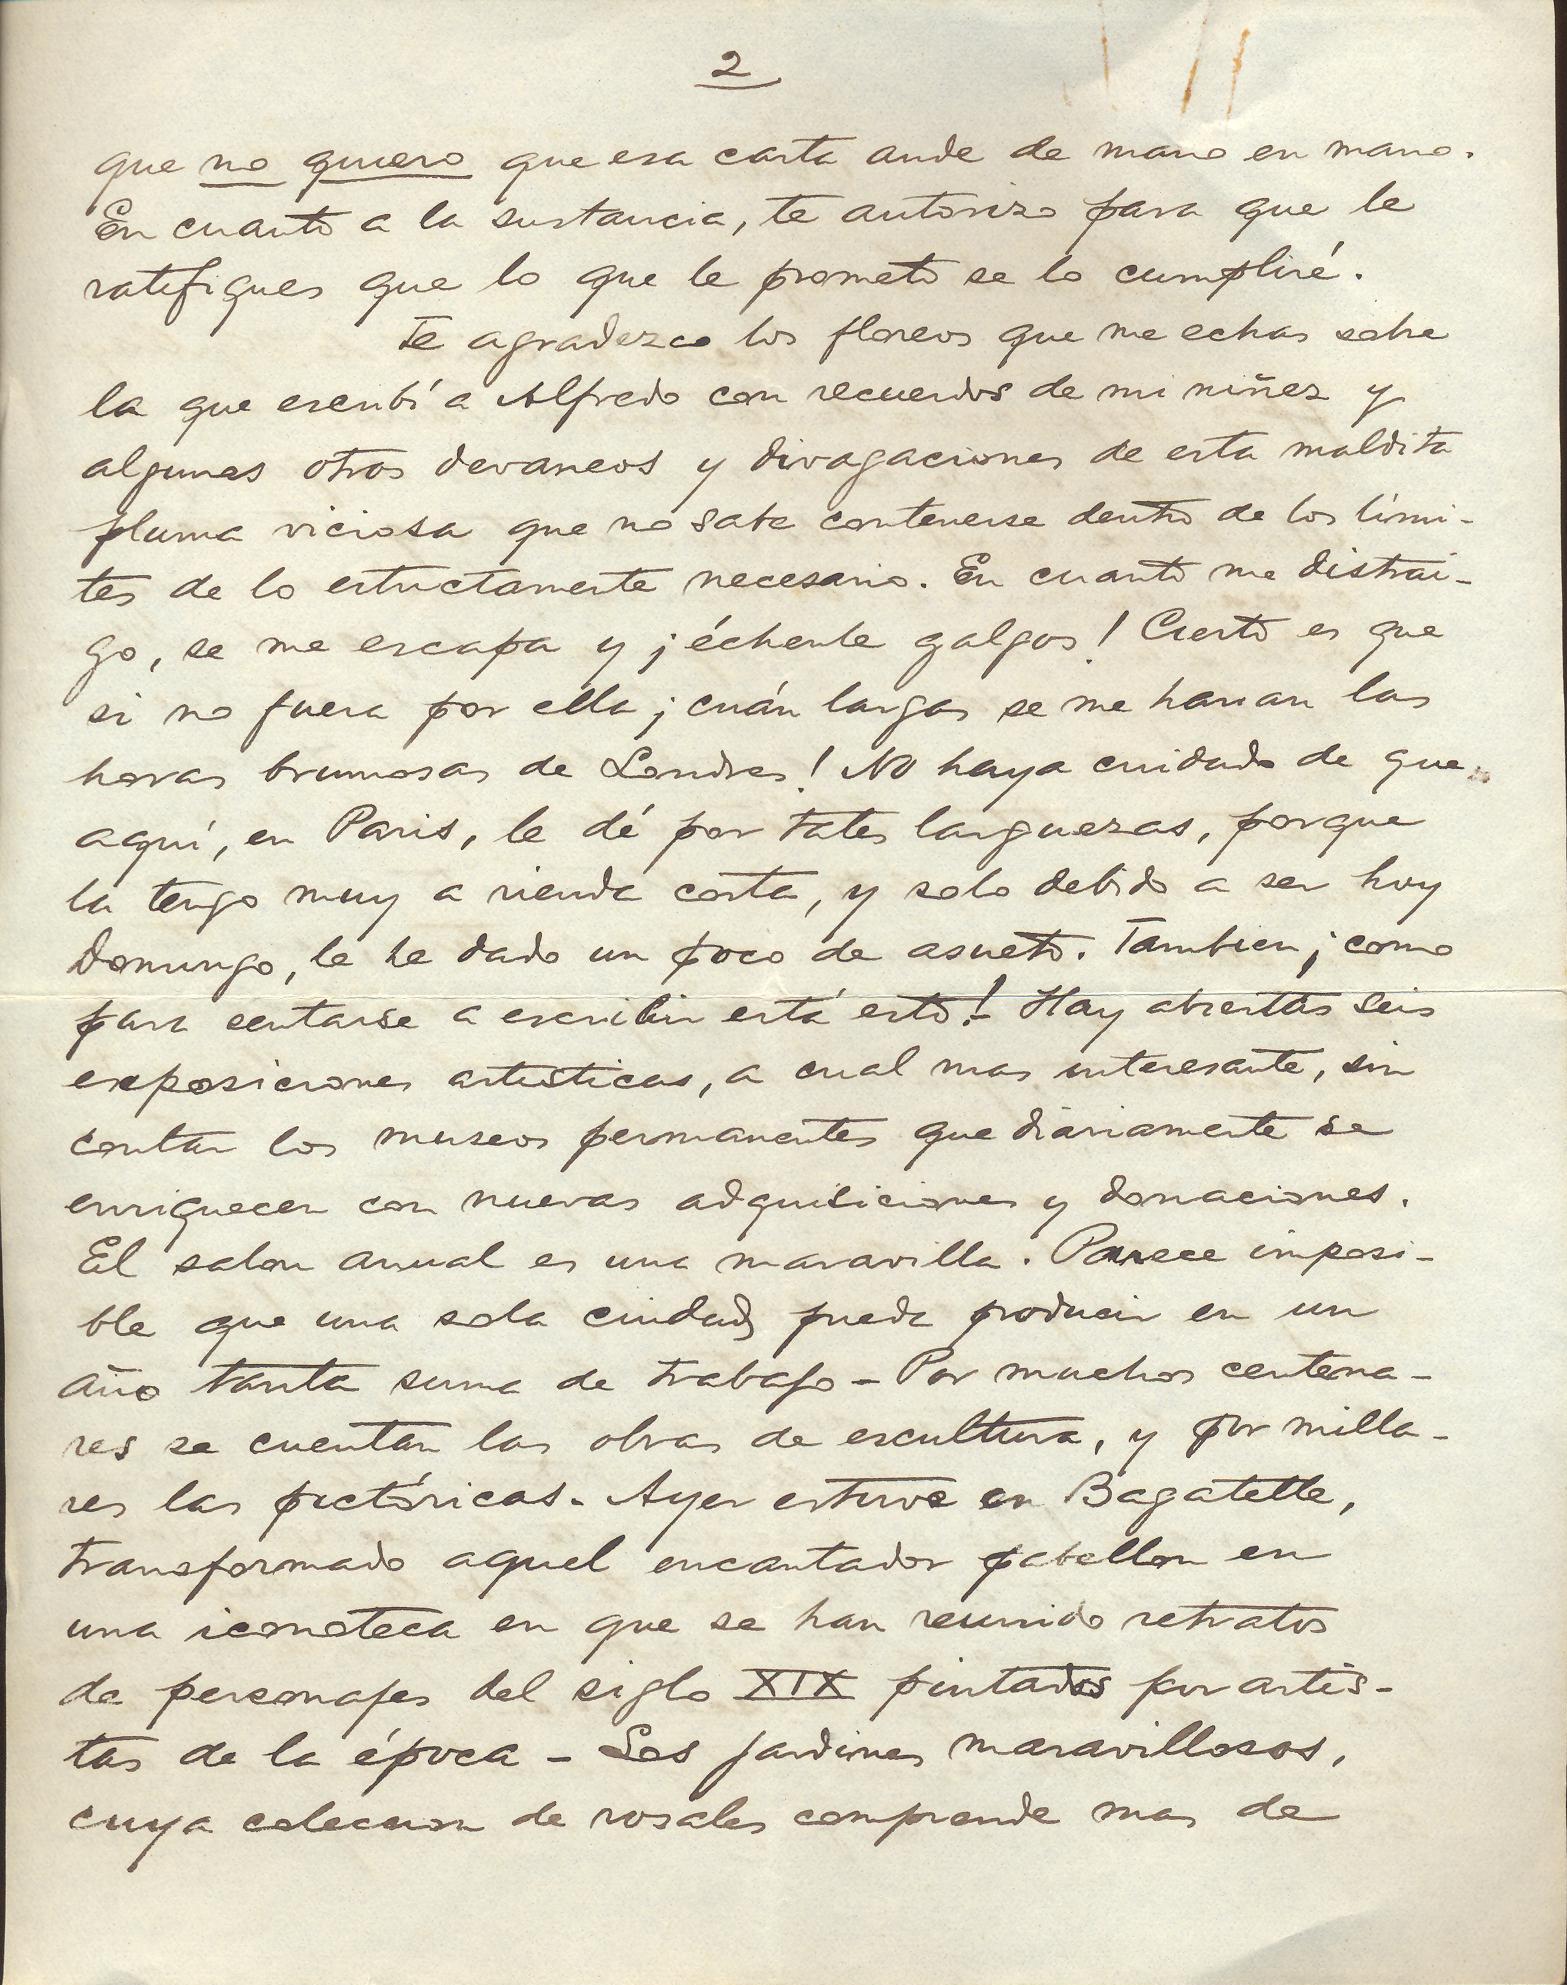 2
que no quiero que esa carta ande de mano en mano.
En cuanto a la sustancia, te autorizo para que le
ratifiques que lo que le prometo se lo cumpliré.
Te agradezco los floreos que me echas sobre
la que escribí a Alfredo con recuerdos de mi niñez y
algunas otros devaneos y divagaciones de esta maldita
pluma viciosa que no sabe contenerse dentro de los lími-
tes de lo estrictamente necesario. En cuanto me distrai-
go, se me escapa y ¡échenle galgos! Cierto es que
si no fuera por ella ¡cuán largas se me harian las
horas brumosas de Londres! No haya cuidado de que
aquí, en Paris, le dé por tales larguezas, porque
la tengo muy a rienda corta, y solo debido a ser hoy
Domingo, le he dado un poco de asueto. Tambien ¡como
para sentarse a escribir está esto! Hay abiertas seis
exposiciones artisticas, a cual mas interesante, sin
contar los museos permanentes que diariamente se
enriquecen con nuevas adquisiciones y donaciones.
El salon anual es una maravilla. Parece imposi-
ble que una sola ciudad pueda producir en un
año tanta suma de trabajo - Por muchos centena-
res se cuentan las obras de escultura, y por milla-
res las pictóricas. Ayer estuve en Bagatelle,
transformado aquel encantador pabellon en
una iconoteca en que se han reunido retratos
de personajes del siglo XIX pintados por artis-
tas de la época - Los jardines maravillosos,
cuya coleccion de rosales comprende mas de